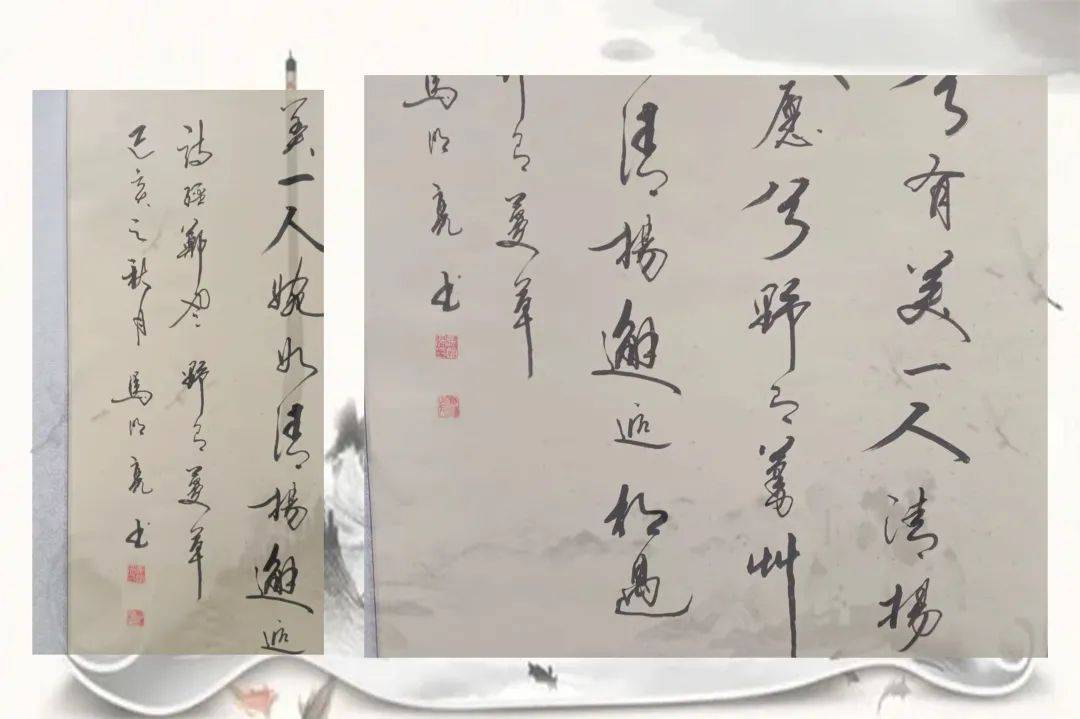 美一人婉如清揚邂逅
詩經鄭風 野有蔓草
己亥之秋月 馬明亮书
兮有美一人清揚
愿兮野有蔓艸
清揚邂逅相遇
有蔓草
馬明亮书